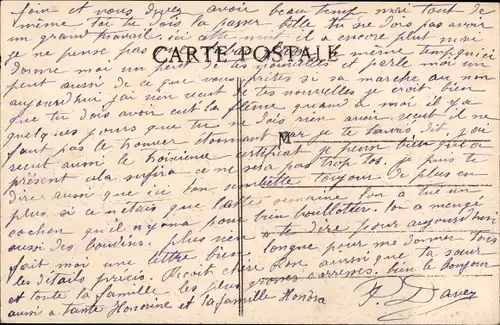 foin et vous devez avoir beau temps moi tout de
même toi tu dois la passer belle tu ne dois pas avoir
un grand travail ici cette nuit il a encore plut moi
je ne pense pas
CARTE POSTALE
même temps qu'ici
donne moi un peut de tes nouvelles et parle moi un
peut aussi de ce que vous faites si sa marche ou non
aujourd'hui j'ai rien reçut de tes nouvelles je croit bien
que tu dois avoir eut la flème quand a moi il y a
quelques jours que tu ne dois rien avoir reçut il ne
faut pas le trouver étonnant car je te l'avais dit, j'ai
M
reçut aussi le troisième certificat je pense bien qu'à
présent cela sufira ce ne sera pas trop tôt. je puis te
dire aussi que ici on sembette toujour de plus en
plus si ce n'étais que cette semaine l'on a tué un
cochon qu'il n'y ona pour bien boullotter. l'on a mangé
aussi des boudins. plus rien a te dire pour aujourd'hui
fait moi une lettre bien longue pour me donner tous
les détails précis. Reçoit chère ainsi que ta sœur
et toute la famille les plus grosses caresses. bien le bonjour
aussi a tante Honorine et la famille Honoré
J. Davey